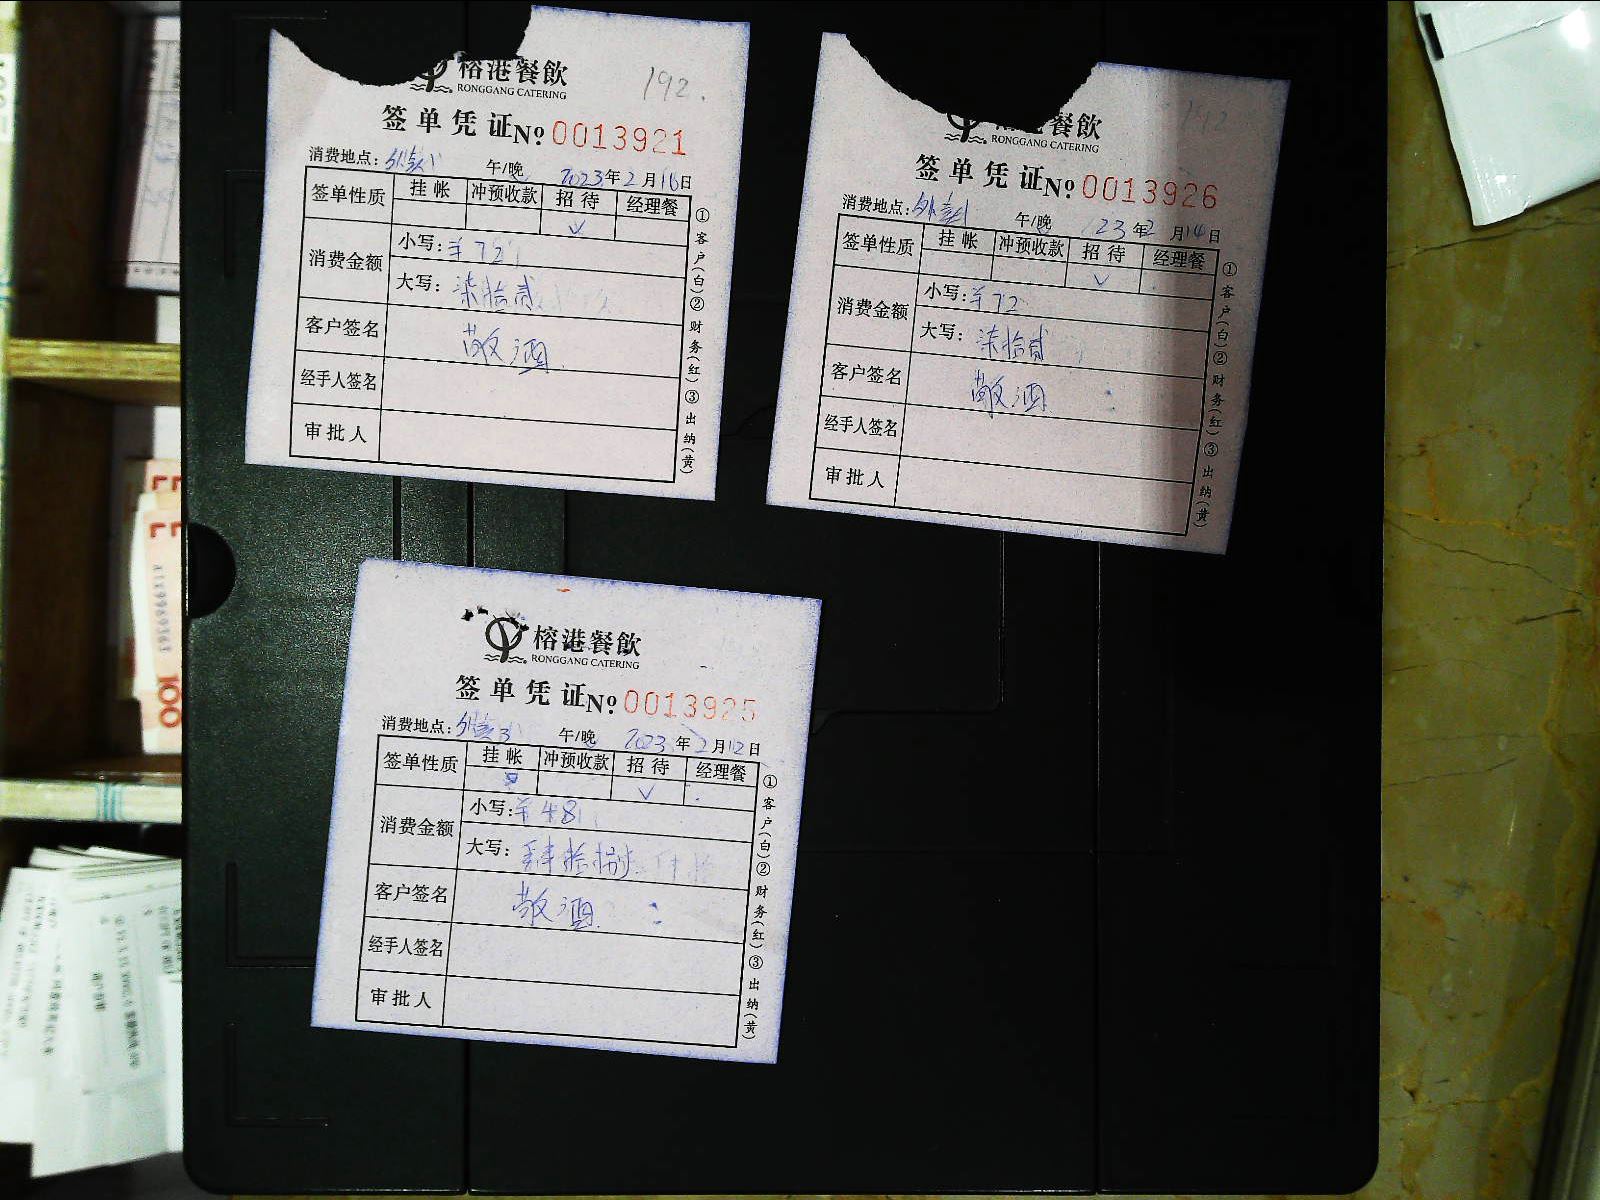 榕港餐飲
192.
RONGGANG CATERING
签单凭证 No 0013921
消费地点: 午/晚 2023年2月16日
签单性质 挂帐 冲预收款 招待 经理餐
✓
消费金额 小写: ¥72
大写: 柒拾贰
客户签名 敬酒
经手人签名
审批人
①客户(白)②财务(红)③出纳(黄)
餐飲
192
RONGGANG CATERING
签单凭证 No 0013926
消费地点: 午/晚 23年2月14日
签单性质 挂帐 冲预收款 招待 经理餐
✓
消费金额 小写: ¥72
大写: 柒拾贰
客户签名 敬酒
经手人签名
审批人
①客户(白)②财务(红)③出纳(黄)
榕港餐飲
RONGGANG CATERING
签单凭证 No 0013925
消费地点: 午/晚 2023年2月12日
签单性质 挂帐 冲预收款 招待 经理餐
✓
消费金额 小写: ¥48
大写: 肆拾捌
客户签名 敬酒
经手人签名
审批人
①客户(白)②财务(红)③出纳(黄)
100